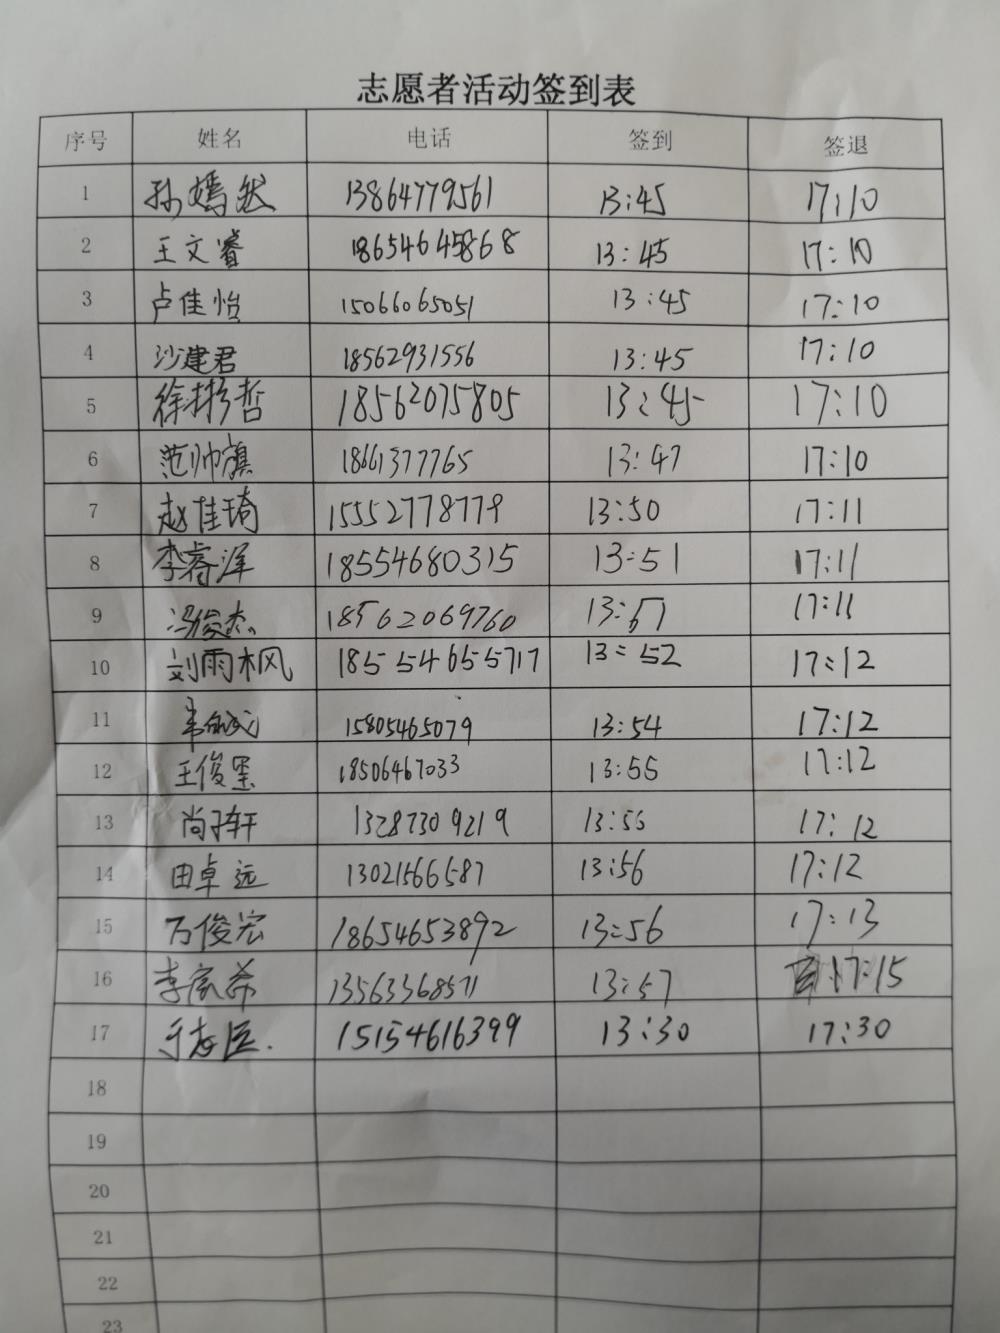 志愿者活动签到表
序号 姓名 电话 签到 签退
1 孙嫣然 13864779561 13:45 17:10
2 王文睿 18654645868 13:45 17:10
3 卢佳怡 15066065051 13:45 17:10
4 沙建君 18562931556 13:45 17:10
5 徐彬哲 18562075805 13:45 17:10
6 范帅旗 18661377765 13:47 17:10
7 赵佳琦 15552778779 13:50 17:11
8 李睿泽 18554680315 13:51 17:11
9 冯俊杰 18562069760 13:51 17:11
10 刘雨枫 18554655717 13:52 17:12
11 15805465079 13:54 17:12
12 王俊墨 18506467033 13:55 17:12
13 尚子轩 13287309219 13:56 17:12
14 田卓远 13021566587 13:56 17:12
15 万俊宏 18654653892 13:56 17:13
16 李家希 13563368571 13:57 17:15
17 于志臣 15154616399 13:30 17:30
18
19
20
21
22
23